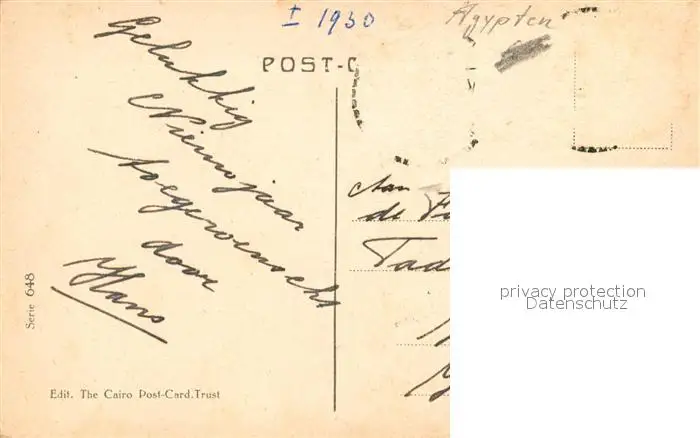 I 1930
Ägypten
POST-C
Gelukkig
Nieuwjaar
toegewenscht
door
Hans
Aan
de
Tad
Serie 648
Edit. The Cairo Post-Card.Trust
privacy protection
Datenschutz